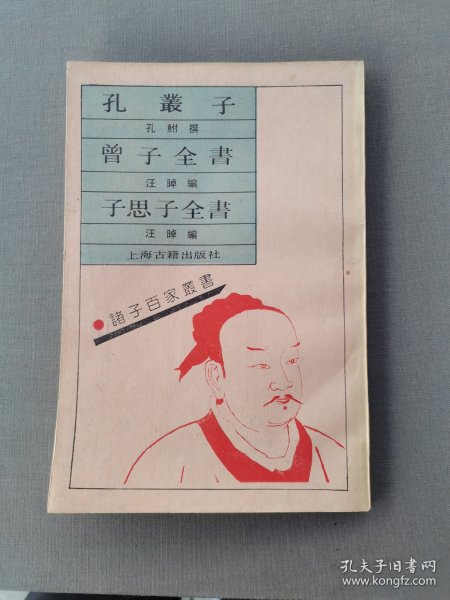 孔叢子
孔鮒撰
曾子全書
汪晫編
子思子全書
汪晫編
上海古籍出版社
諸子百家叢書
孔夫子旧书网
www.kongfz.com